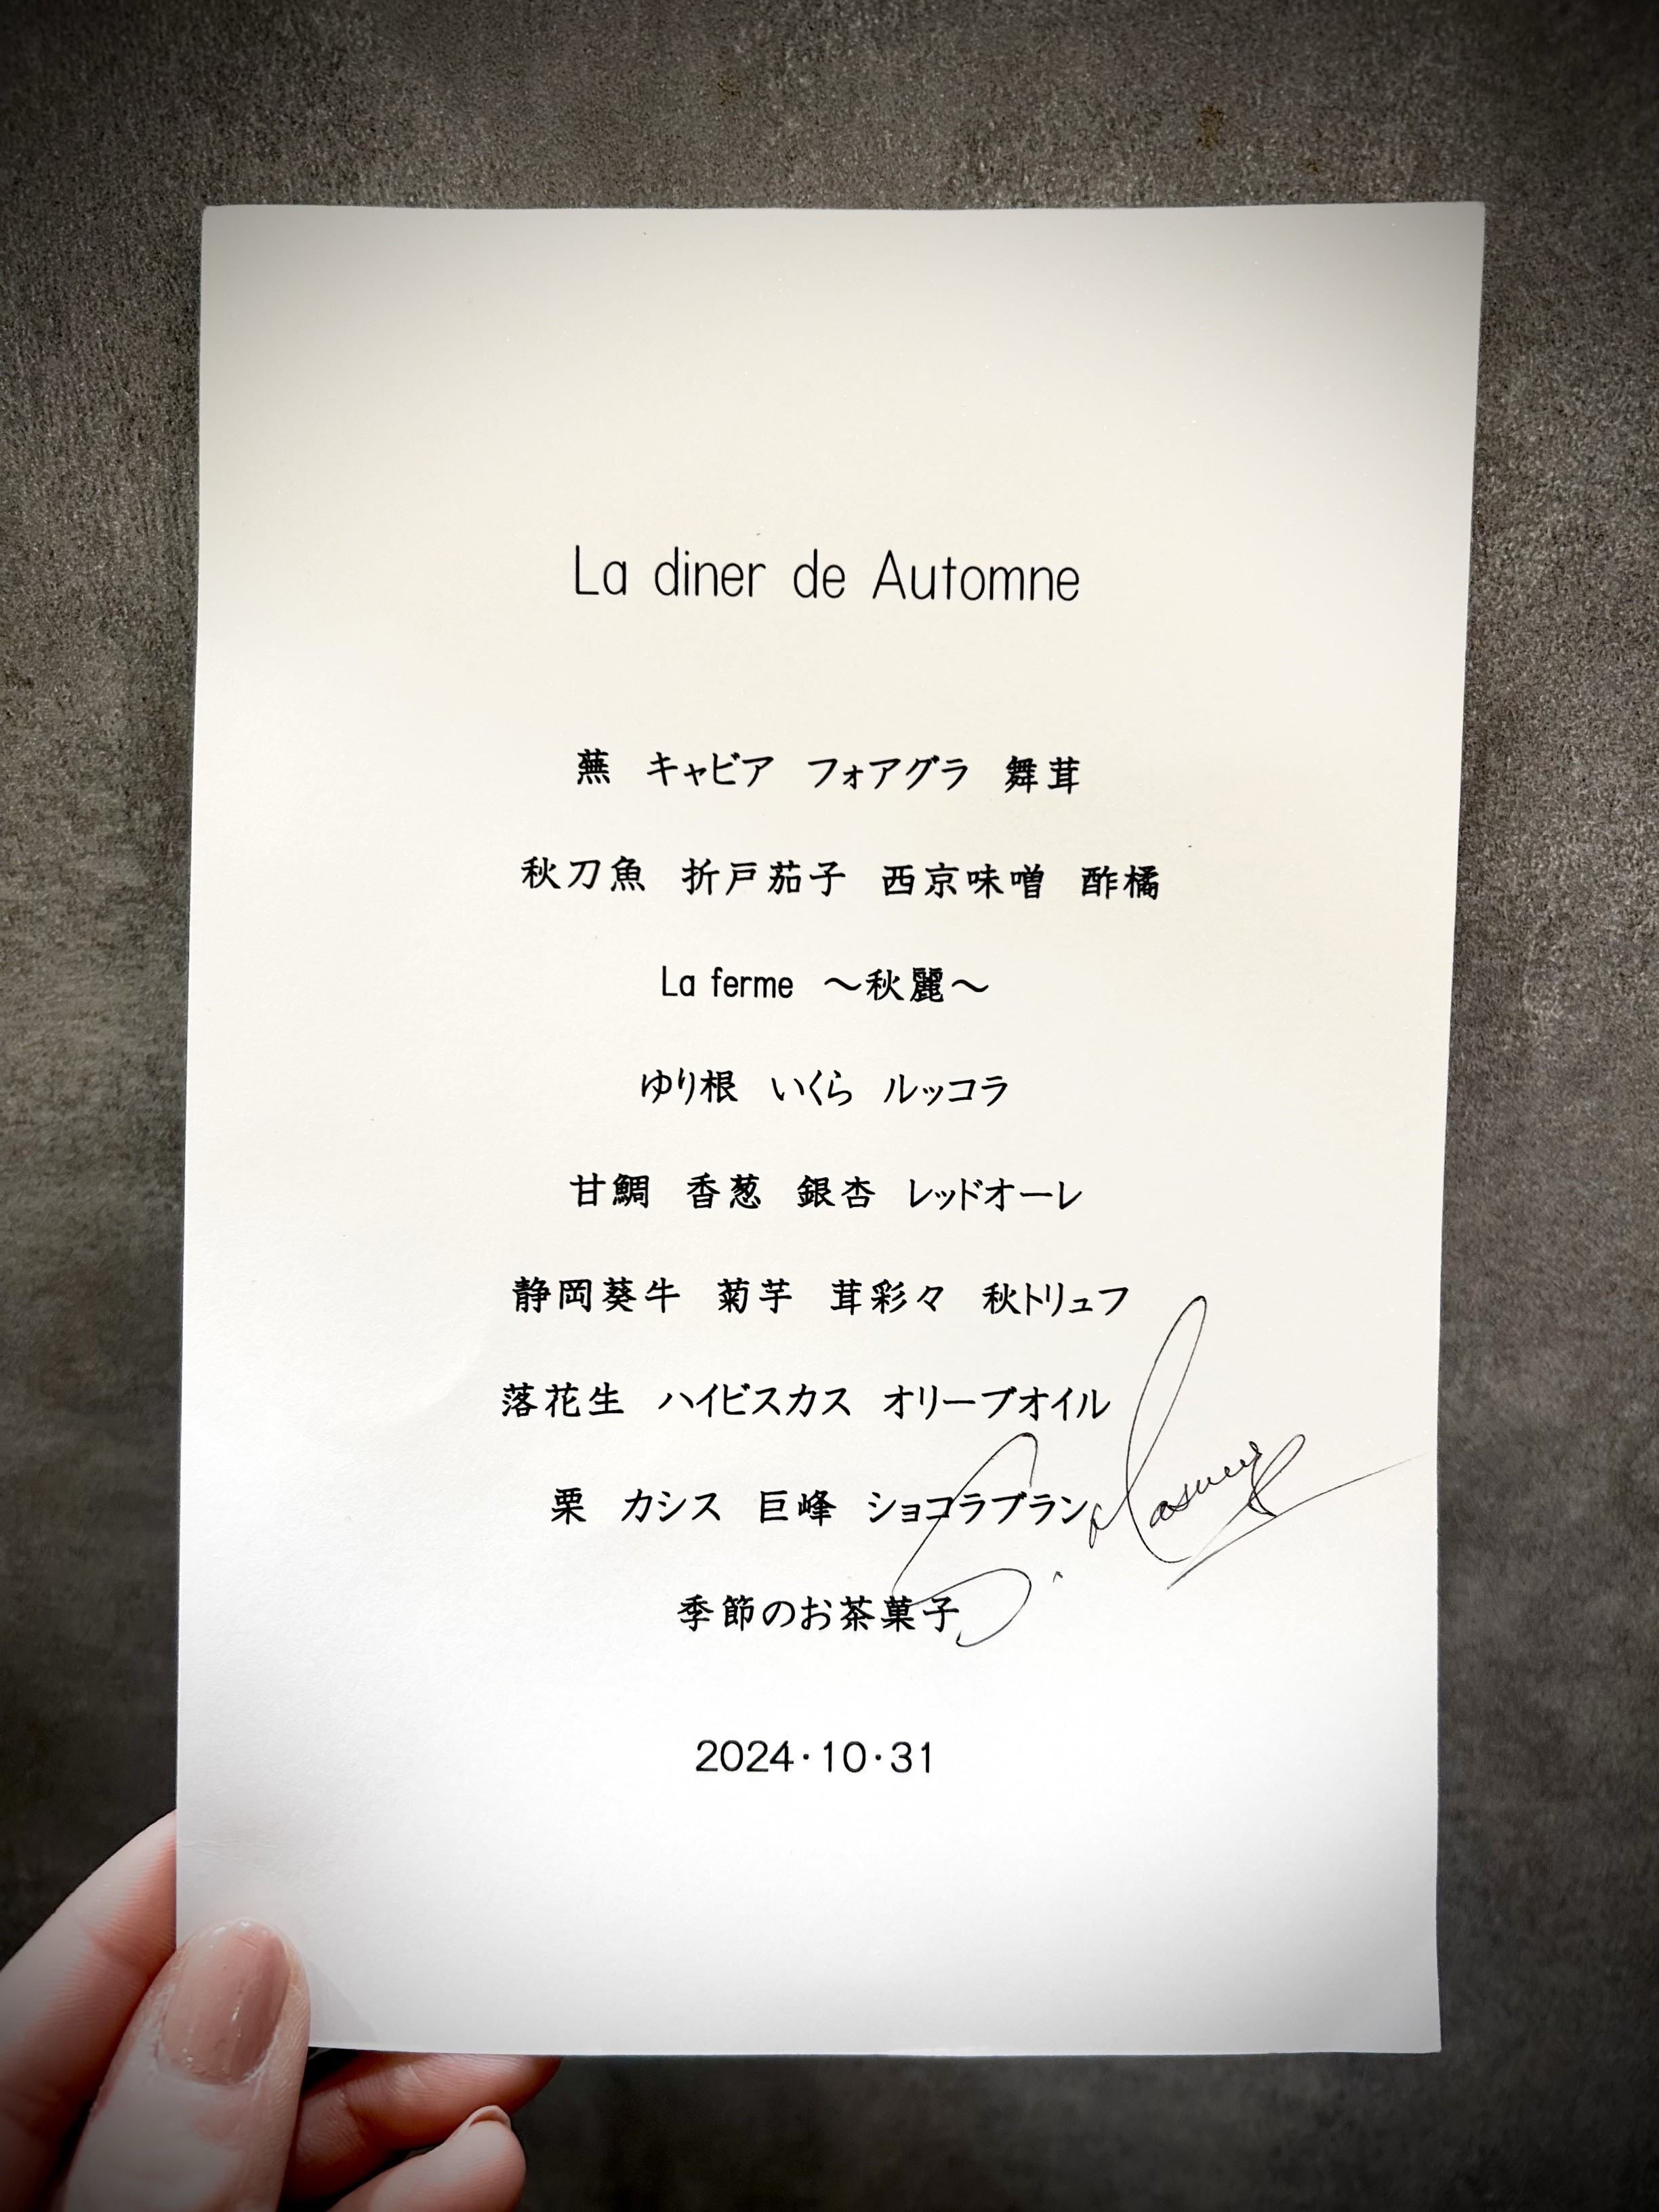 La diner de Automne
蕪 キャビア フォアグラ 舞茸
秋刀魚 折戸茄子 西京味噌 酢橘
La ferme ～秋麗～
ゆり根 いくら ルッコラ
甘鯛 香葱 銀杏 レッドオーレ
静岡葵牛 菊芋 茸彩々 秋トリュフ
落花生 ハイビスカス オリーブオイル
栗 カシス 巨峰 ショコラブラン
季節のお茶菓子
2024・10・31